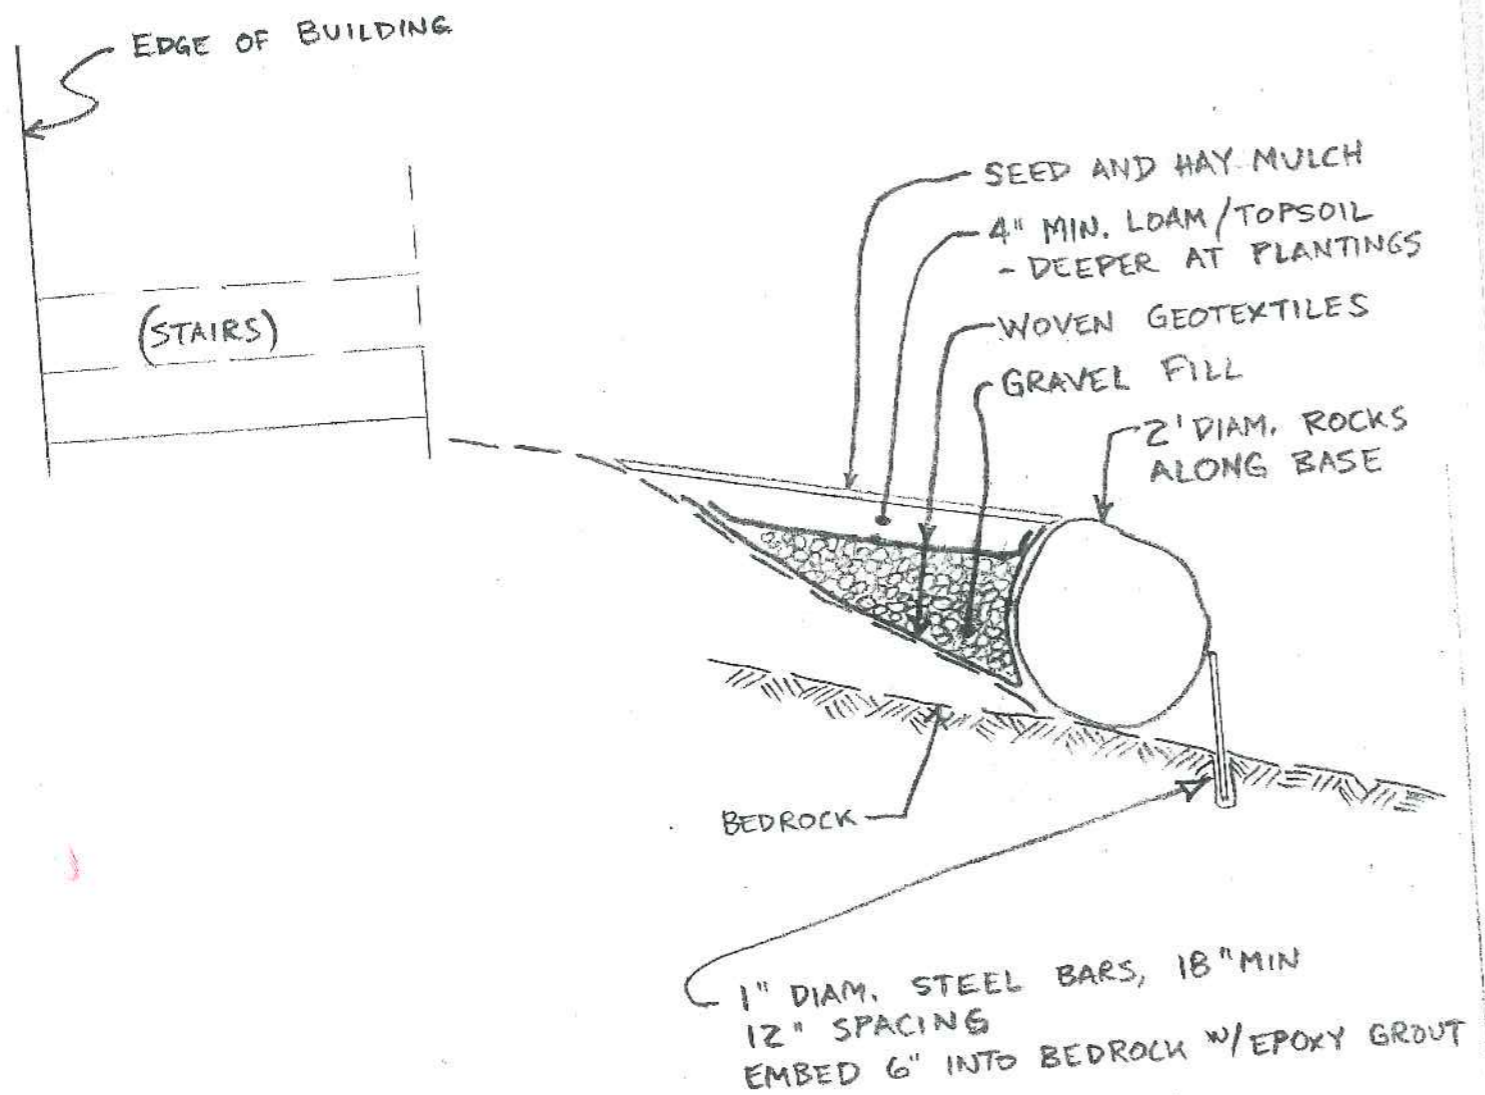 EDGE OF BUILDING
SEED AND HAY MULCH
4" MIN. LOAM/TOPSOIL
- DEEPER AT PLANTINGS
(STAIRS)
WOVEN GEOTEXTILES
GRAVEL FILL
2' DIAM. ROCKS
ALONG BASE
BEDROCK
1" DIAM. STEEL BARS, 18" MIN
12" SPACING
EMBED 6" INTO BEDROCK W/EPOXY GROUT